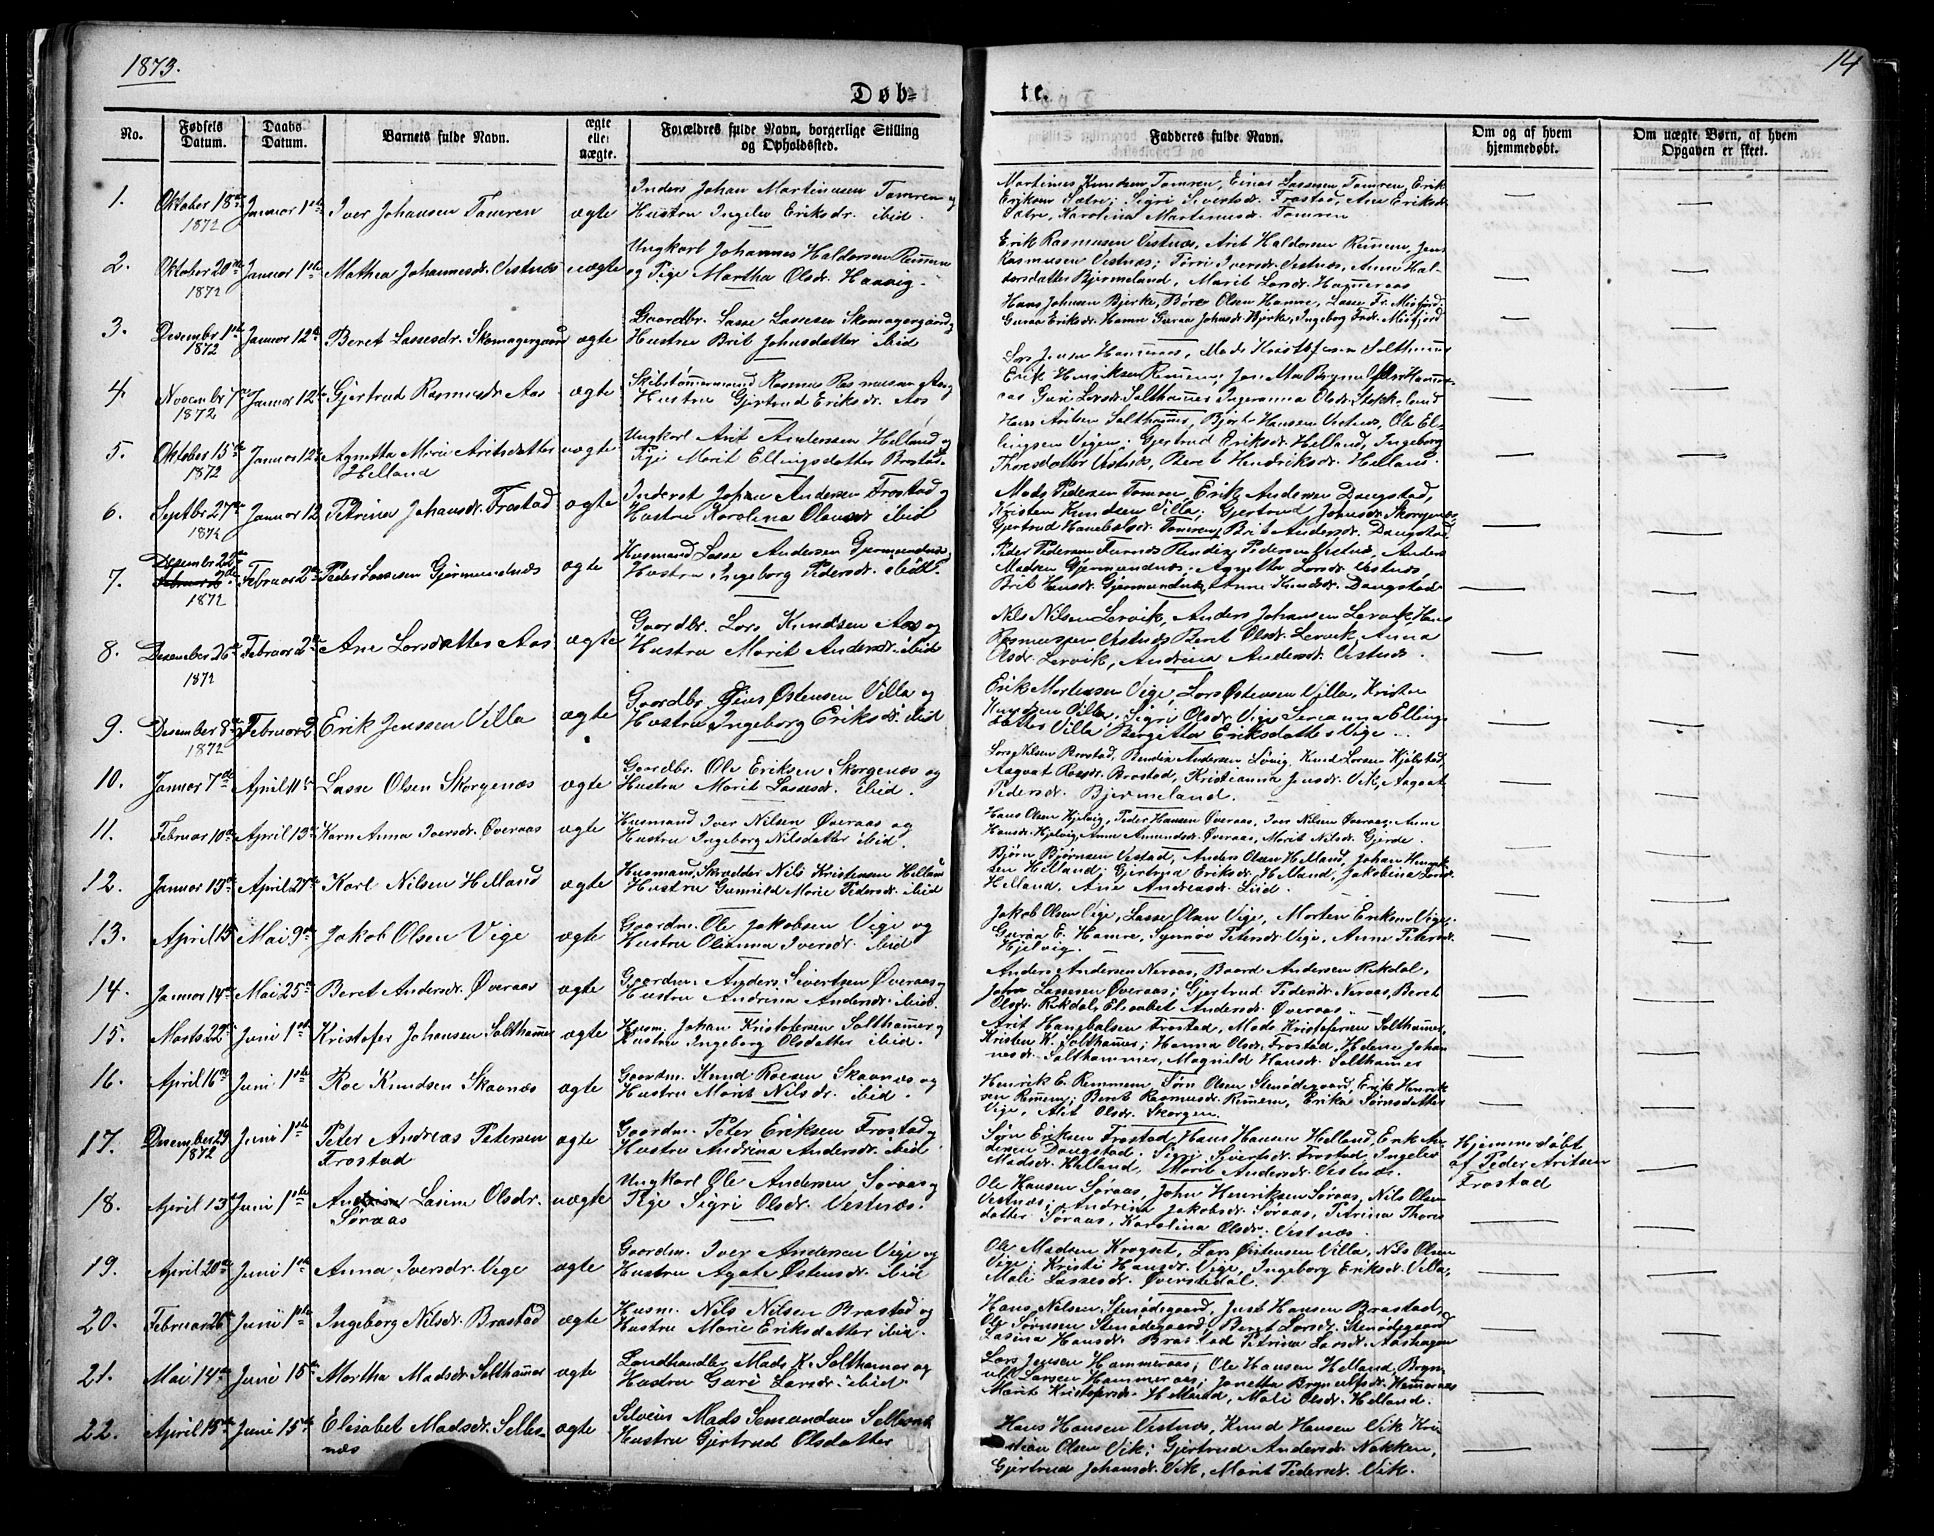 1873.
14
Døb=
te.
No.
Fødsels Datum.
Daabs Datum.
Barnets fulde Navn.
ægte eller uægte.
Forældres fulde Navn, borgerlige Stilling og Opholdssted.
Fadderes fulde Navn.
Om og af hvem hjemmedøbt.
Om uægte Børn, af hvem Opgaven er skeet.
1. Oktober 18de 1872 Januar 1ste Iver Johansen Tomren ægte
Inders Johan Martinusen Tomren og
Hustru Ingelev Eriksdr. ibid.
Martines Knudsen Tomren, Einar Lassesen Tomren, Erik
Eriksen Sætre; Sigri Sivertsdr. Frostad, Ane Eriksdr.
Sætre, Karolina Martinusdr. Tomren
2. Oktober 20de 1872 Januar 1ste Mathea Johannesdr. Vestnæs uægte
Ungkarl Johannes Haldorsen Remem
og Pige Martha Olsdr. Haavig.
Erik Rasmusen Vestnæs, Arit Haldorsen Remem, Jens
Rasmusen Vestnæs; Iversdr. Vestnæs, Anne Hal-
dorsdatter Bjermeland, Marit Larsdr. Hameraas
3. Desember 1ste 1872 Januar 12te Beret Lassesdr. Skomagergaard ægte
Gaardbr. Lasse Lassesen Skomagergaard og
Hustru Brit Johnsdatter ibid
Hans Johnsen Bjerke, Børe Olsen Hamre, Lasse Fr. Misfjord
Guraa Eriksdr. Hamre Guraa Johnsdr. Bjerke, Ingeborg Misfjord
4. November 7de 1872 Januar 12te Gjertrud Rasmusdr. Aas ægte
Skibstømmermand Rasmus Rasmusen Aas og
Hustru Gjertrud Eriksdr. Aas
Lars Jensen Hameraas, Mads Kristofersen Salthamer
Erik Henriksen Remem; Hamer-
aas Guri Larsdr. Salthamer Ingeranna Olsdr. Stokkeland
5. Oktober 15de 1872 Januar 12te Agnetta Marie Aritsdatter
Helland uægte
Ungkarl Arit Andersen Helland og
Pige Marit Ellingsdatter Brastad.
Hans Salthamer, Hansen Vestnæs, Ole El-
lingsen Vigen; Gjertrud Eriksdr. Helland, Ingeborg
Thoresdatter Vestnæs, Beret Hendriksdr. Helland.
6. Septbr. 27de 1872 Januar 12 Petrina Johansdr. Frostad ægte
Inderst Johan Andersen Frostad og
Hustru Karolina Olausdr. ibid
Mads Pedersen Tomren, Erik Andersen Daugstad,
Kristen Knudsen Villa; Gjertrud Johnsdr. Skorgenæs
Gjertrud Hanebalsdr. Tomren, Brit Andersdr. Daugstad
7. Desember 22de 1872 Februar 2den Peder Lassesen Gjermundnæs ægte
Husmand Lasse Andersen Gjermundnæs
Hustru Ingeborg Pedersdr. ibid.
Peder Pedersen Furnæs Pedersen Vestnæs, Anders
Madsen Gjermundnæs; Agnetta Larsdr. Vestnæs,
Brit Hansdr. Gjermundnæs, Anne Knudsdr. Daugstad
8. Desember 26de 1872 Februar 2den Ane Larsdatter Aas ægte
Gaardbr. Lars Knudsen Aas og
Hustru Marit Andersdr. ibid
Nils Nilsen Lervik, Anders Johansen Lervik, Hans
Rasmussen Vestnæs Beret Olsdr. Lervik, Anna
Olsdr. Lervik, Andrina Andersdr. Vestnæs.
9. Desember 8de 1872 Februar 2 Erik Jenssen Villa ægte
Gaardbr. Jens Østensen Villa og
Hustru Ingeborg Eriksdr. ibid
Erik Mortensen Vige, Lars Østensen Villa, Kristen
Knudsen Villa, Sigri Olsdr. Vige Serianna Elling-
datter Villa Bergitta Eriksdatter Vige.
10. Januar 7de April 11te Lasse Olsen Skorgenæs ægte
Gaardbr. Ole Eriksen Skorgenæs og
Hustru Marit Lassesdr. ibid.
Lars Nilsen Brastad, Andersen Knud Larsen Kjelbstad,
Aagaat Brastad, Kristianna Jensdr. Vik, Aagaat
Pedersdr. Bjermeland.
11. Februar 10de April 13de Karn Anna Iversdr. Øveraas ægte
Husmand Iver Nilsen Øveraas og
Hustru Ingeborg Nilsdatter ibid.
Hans Olsen Hjelvig, Peder Hansen Øveraas, Iver Nilsen Øveraas, Anne
Hansdr. Hjelvig, Anne Amundsdr. Øveraas, Marit Nilsdr. Gjerde.
12. Januar 13de April 27de Karl Nilsen Helland ægte
Husmand, Skrædder Nils Kristensen Helland
Hustru Gunnild Marie Pedersdr. ibid
Bjørn Bjørnsen Vestad, Anders Olsen Helland, Johan
Helland; Gjertrud Eriksdr. Helland, Jakobina
Helland, Ane Andreasdr. ibid.
13. April 13 Mai 9de Jakob Olsen Vige ægte
Gaardm. Ole Jakobsen Vige og
Hustru Olianna Iversdr. ibid
Jakob Olsen Vige, Lasse Olsen Vige, Morten Eriksen Vige;
Guraa E. Hamre, Synnøv Petersdr. Vige, Anne Petersdr.
Hjelvig.
14. Januar 14de Mai 25de Beret Andersdr. Øveraas ægte
Gaardm. Anders Sivertsen Øveraas og
Hustru Andrina Andersdr. ibid.
Anders Andersen Neraas, Baard Andersen Rekdal,
John Lassesen Øveraas; Gjertrud Pedersdr. Neraas, Beret
Olsdr. Rekdal, Elisabet Andersdr. Øveraas.
15. Marts 22de Juni 1ste Kristofer Johansen Salthamer ægte
Husm. Johan Kristofersen Salthamer og
Hustru Ingeborg Olsdatter ibid.
Arit Hanebalsen Frostad, Mads Kristofersen Salthamer,
Kristen K. Salthamer; Hanna Olsdr. Frostad, Helene Johan-
nesdr. Salthammer, Magnild Hansdr. Salthamer
16. April 16de Juni 1ste Roe Knudsen Skavnæs ægte
Gaardm. Knud Roesen Skavnæs og
Hustru Marit Nilsdr. ibid.
Henrik E. Remmem, Søren Olsen Stenødegaard, Erik Henrik-
sen Remem; Beret Rasmusdr. Remem, Erika Sørnsdatter
Vige, Alet Olsdr. Skorgen.
17. Desember 29 1872 Juni 1ste Peter Andreas Petersen
Frostad ægte
Gaardm. Peter Eriksen Frostad og
Hustru Andrina Andersdr. ibid
Søren Eriksen Frostad, Hans Hansen Helland, Erik An-
dersen Daugstad; Sigri Sivertsdr. Frostad, Ingelev
Madsdr. Helland, Marit Andersdr. Vestnæs.
Hjemmedøbt
af Peder Aritsen
Frostad
18. April 13de Juni 1ste Lasine Olsdr.
Søraas uægte
Ungkarl Ole Andersen Søraas og
Pige Sigri Olsdr. Vestnæs.
Ole Hansen Søraas, John Henriksen Søraas, Nils Olsen
Vestnæs; Andrina Jakobsdr. Søraas, Petrina Thores-
datter Søraas, Karolina Olsdr. Vestnæs.
19. April 20de Juni 1ste Anna Iversdr. Vige ægte
Gaardm. Iver Andersen Vige og
Hustru Agate Østensdr. ibid
Ole Madsen Krogset, Lars Østensen Villa, Nils Olsen
Vige; Kristi Hansdr. Vige, Ingeborg Eriksdr. Villa,
Mali Lassesdr. Øverstedal.
20. Februar 26de Juni 1ste Ingeborg Nilsdr. Brastad ægte
Husm. Nils Nilsen Brastad og
Hustru Marie Eriksdatter ibid.
Hans Nilsen Stenødegaard, Just Hansen Brastad,
Ole Sørnsen Stenødegaard; Beret Larsdr. Stenødegaard
Lasina Hansdr. Brastad Petrina Larsdr. Aashagen
21. Mai 14de Juni 15de Martha Madsdr. Salthamer ægte
Landhandler Mads K. Salthamer og
Hustru Guri Larsdr. ibid.
Lars Jensen Hammeraas; Ole Hansen Helland, Bryn-
ulf Larsen Hammeraas; Janetta Brynulfsdr. Hameraas
Marit Kristofersdr. Helland, Mali Olsdr. Helland.
22. April 15de Juni 15de Elisabet Madsdr. Selles-
næs ægte
Mads Semundsen
Hustru Gjertrud Olsdatter
Hans Hansen Vestnæs, Knud Hansen Vik Kri-
stian Olsen Vik; Gjertrud Andersdr. Nakken,
Gjertrud Johansdr. Vik, Marit Pedersdr. Vik.